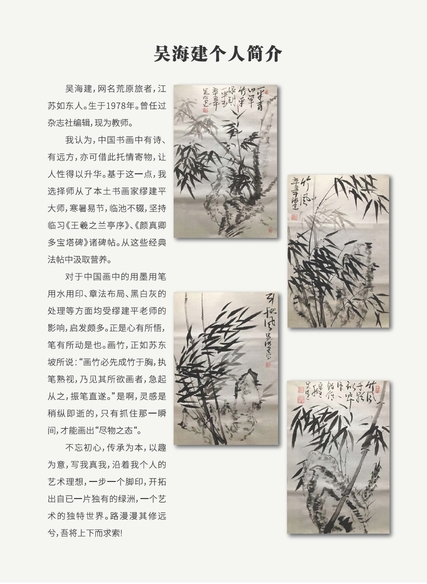 吴海建个人简介
吴海建，网名荒原旅者，江
苏如东人。生于1978年。曾任过
杂志社编辑，现为教师。
我认为，中国书画中有诗、
有远方，亦可借此托情寄物，让
人性得以升华。基于这一点，我
选择师从了本土书画家缪建平
大师，寒暑易节，临池不辍，坚持
临习《王羲之兰亭序》、《颜真卿
多宝塔碑》诸碑帖。从这些经典
法帖中汲取营养。
对于中国画中的用墨用笔
用水用印、章法布局、黑白灰的
处理等方面均受缪建平老师的
影响，启发颇多。正是心有所悟，
笔有所动是也。画竹，正如苏东
坡所说：“画竹必先成竹于胸，执
笔熟视，乃见其所欲画者，急起
从之，振笔直遂。”是啊，灵感是
稍纵即逝的，只有抓住那一瞬
间，才能画出“尽物之态”。
不忘初心，传承为本，以趣
为意，写我真我，沿着我个人的
艺术理想，一步一个脚印，开拓
出自已一片独有的绿洲，一个艺
术的独特世界。路漫漫其修远
兮，吾将上下而求索!
竹風